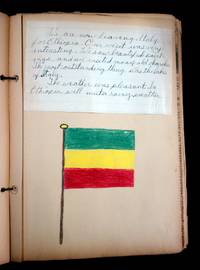 We are now leaving Italy
for Ethiopia. Our visit was very
interesting. We saw beautiful paint
ings, and we visited many old churches.
The most outstanding thing was the lakes
of Italy.
The weather was pleasant. In
Ethiopia we'll make rainy weather.